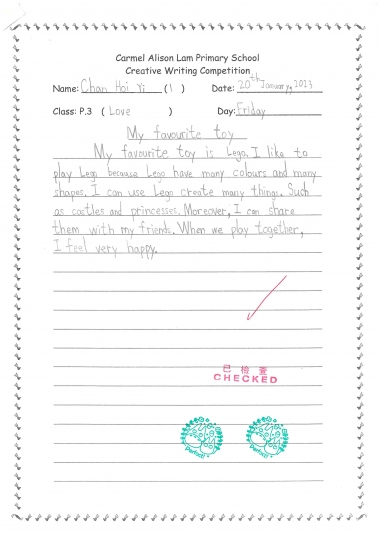 Carmel Alison Lam Primary School
Creative Writing Competition
Name: Chan Hoi Yi (1) Date: 20th January, 2013
Class: P.3 (Love) Day: Friday
My favourite toy
My favourite toy is Lego. I like to
play Lego because Lego have many colours and many
shapes. I can use Lego create many things. Such
as castles and princesses. Moreover, I can share
them with my friends. When we play together,
I feel very happy.
已檢查
CHECKED
Perfect! Perfect!